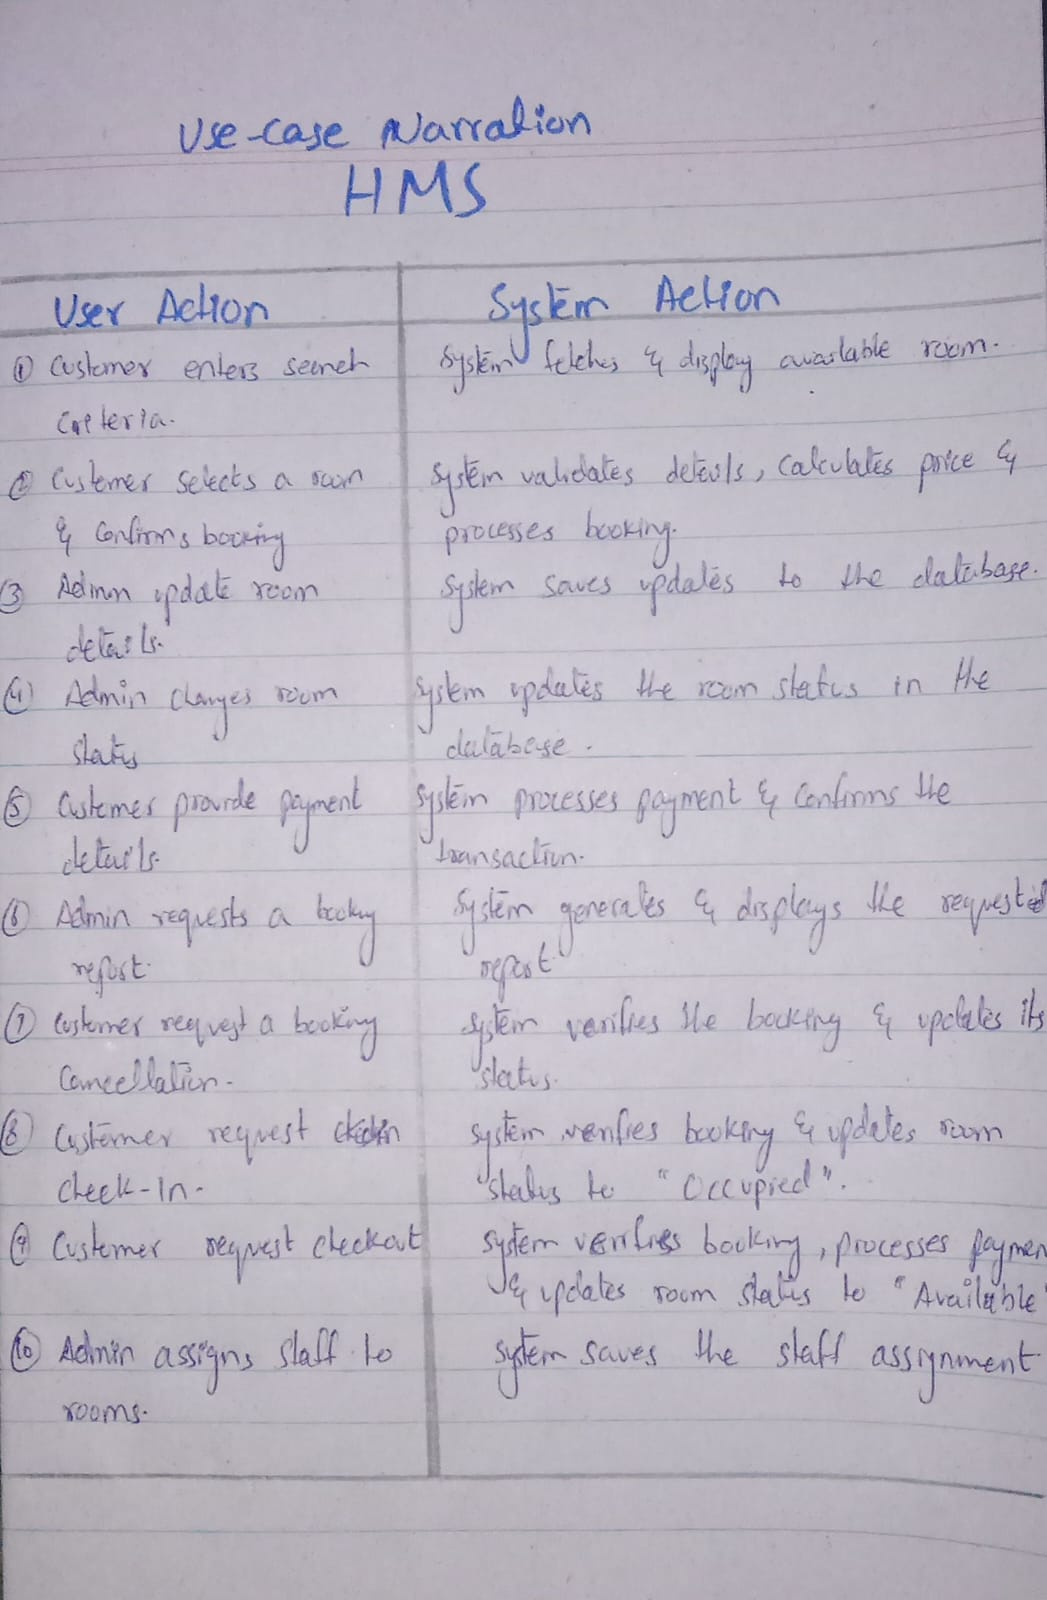 Use-case Narration
HMS
User Action
System Action
① Customer enters search
criteria.
System fetches & display available room.
② Customer selects a room
& Confirms booking
System validates details, Calculates price &
processes booking.
③ Admin update room
details.
System saves updates to the database.
④ Admin changes room
status
System updates the room status in the
database.
⑤ Customer provide payment
details.
System processes payment & Confirms the
transaction.
⑥ Admin requests a booking
report.
System generates & displays the requested
report.
⑦ Customer request a booking
Cancellation.
System verifies the booking & updates its
status.
⑧ Customer request
check-In.
System verifies booking & updates room
status to "Occupied".
⑨ Customer request checkout
system verifies booking, processes paymen
& updates room status to "Available"
⑩ Admin assigns staff to
rooms.
system saves the staff assignment